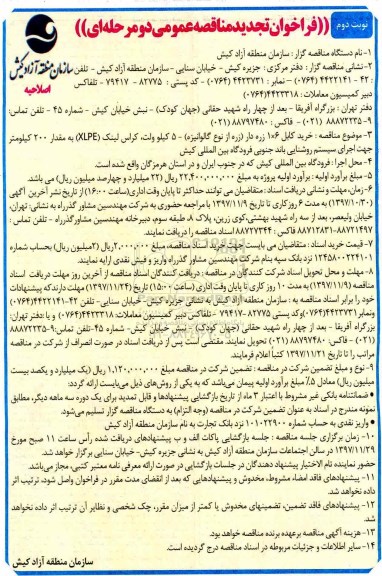 نوبت دوم
((فراخوان تجدید مناقصه عمومی دو مرحله ای))
سازمان منطقه آزاد کیش
اصلاحیه
۱- نام دستگاه مناقصه گزار: سازمان منطقه آزاد کیش
۲- نشانی مناقصه گزار: دفتر مرکزی: جزیره کیش - خیابان سنایی - سازمان منطقه آزاد کیش - تلفن
دبیر کمیسیون معاملات: ۴۴۲۳۳۱۸ (۰۷۶۴)
دفتر تهران: بزرگراه آفریقا - بعد از چهار راه شهید حقانی (جهان کودک) - نبش خیابان کیش - شماره ۴۵ - تلفن تماس:
۳- موضوع مناقصه: خرید کابل ۶×۱ زره دار (زره از نوع گالوانیزه) - ۵ کیلو ولت، کراس لینک (XLPE) به مقدار ۲۰۰ کیلومتر
جهت اجرای سیستم روشنایی باند جنوبی فرودگاه بین المللی کیش
۴- محل اجرا: فرودگاه بین المللی کیش که در جنوب ایران و در استان هرمزگان واقع شده است.
۵- مبلغ برآورد اولیه: برآورد اولیه پروژه به مبلغ ۲۲,۴۰۰,۰۰۰,۰۰۰ ریال (۲۲ میلیارد و چهارصد میلیون ریال) می باشد.
۶- زمان، مهلت و نشانی دریافت اسناد: متقاضیان می توانند حداکثر تا پایان وقت اداری (ساعت ۱۶:۰۰) از تاریخ نشر آخرین آگهی
(۱۳۹۷/۱۰/۳۰) به مدت ۶ روز کاری تا تاریخ ۱۳۹۷/۱۱/۹ با مراجعه حضوری به شرکت مهندسین مشاور گذرراه به نشانی: تهران،
خیابان ولیعصر، بعد از سه راه شهید بهشتی، کوی زرین، پلاک ۸، طبقه سوم، دبیرخانه مهندسین مشاور گذرراه - تلفن تماس:
۸۸۷۱۲۸۳۱-۸۸۷۱۱۴۹۷ فاکس: ۸۸۷۲۷۳۴۴ اسناد مناقصه را دریافت نمایند.
۷- قیمت خرید اسناد: متقاضیان می بایست جهت خرید اسناد مناقصه، مبلغ ۲,۰۰۰,۰۰۰ ریال (۲ میلیون ریال) بحساب شماره
۱۲۴۵۸۰۰۲۲۴۱۰۱ نزد بانک سپه بنام شرکت مهندسین مشاور گذرراه واریز و فیش نقدی ارایه نمایند.
۸- مهلت و محل تحویل اسناد شرکت کنندگان در مناقصه: دریافت کنندگان اسناد مناقصه از آخرین روز مهلت دریافت اسناد
مناقصه (۱۳۹۷/۱۱/۹) به مدت ۱۰ روز کاری تا پایان وقت اداری (ساعت ۱۵:۰۰) تاریخ (۱۳۹۷/۱۱/۲۴) مهلت دارند که پیشنهادات
خود را برابر اسناد مناقصه به: سازمان منطقه آزاد کیش به نشانی جزیره کیش، خیابان سنایی- تلفن ۴۲-۴۴۲۲۱۴۱ (۰۷۶۴)
بزرگراه آفریقا - بعد از چهار راه شهید حقانی (جهان کودک) - نبش خیابان کیش - شماره ۴۵- تلفن تماس: ۹-۸۸۸۷۲۲۳۵
(۰۲۱) - فاکس: ۸۸۷۹۷۴۸۰ (۰۲۱) تحویل نمایند. مقتضی است پس از دریافت اسناد در صورت انصراف از شرکت در مناقصه
مراتب را تا تاریخ ۱۳۹۷/۱۱/۲۱ کتباً اعلام فرمایند.
۹- نوع و مبلغ تضمین شرکت در مناقصه: تضمین شرکت در مناقصه مبلغ ۱,۱۲۰,۰۰۰,۰۰۰ ریال (یک میلیارد و یکصد بیست
میلیون ریال) معادل ۷,۵ مبلغ برآورد اولیه پیمان می باشد که به یکی از روش های ذیل می بایست ارائه گردد:
• ضمانتنامه بانکی غیر مشروط با اعتبار ۳ ماه از تاریخ بازگشایی پیشنهادها و قابل تمدید برای یک دوره سه ماهه دیگر، مطابق
نمونه مندرج در اسناد به عنوان تضمین شرکت در مناقصه (وجه التزام) به دستگاه مناقصه گزار تسلیم می شود.
• واریز نقدی به حساب شماره ۱۰۱۰۲۲۹۰۰ نزد بانک تجارت به نام سازمان منطقه آزاد کیش
۱۰- زمان برگزاری جلسه مناقصه: جلسه بازگشایی پاکات الف و ب پیشنهادهای دریافت شده رأس ساعت ۱۱ صبح مورخ
۱۳۹۷/۱۱/۲۹ در سالن اجتماعات سازمان منطقه آزاد کیش به نشانی جزیره کیش- خیابان سنایی برگزار خواهد شد.
حضور نماینده تام الاختیار پیشنهاد دهندگان در جلسات بازگشایی در صورت ارائه معرفی نامه معتبر کتبی، مجاز می باشد.
۱۱- پیشنهادهای فاقد امضاء، مشروط، مخدوش و پیشنهادهایی که بعد از انقضای مدت مقرر در فراخوان واصل شود، ترتیب اثر
داده نخواهد شد.
۱۲- پیشنهادهای فاقد تضمین، تضمینهای مخدوش یا کمتر از میزان مقرر، چک شخصی و نظایر آن ترتیب اثر داده نخواهد
شد.
۱۳- هزینه آگهی مناقصه برعهده برنده مناقصه خواهد بود.
۱۴- سایر اطلاعات و جزئیات مربوطه در اسناد مناقصه درج گردیده است.
سازمان منطقه آزاد کیش